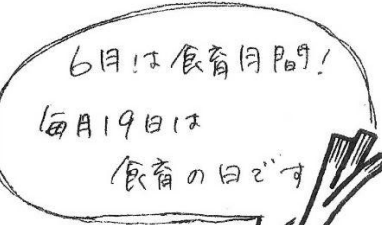 6月は食育月間!
毎月19日は
食育の日です